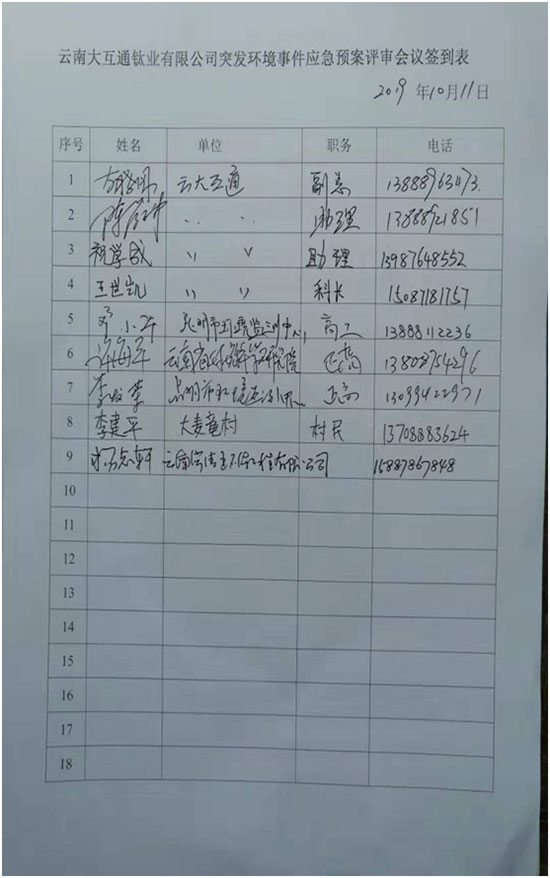 云南大互通钛业有限公司突发环境事件应急预案评审会议签到表
2019 年10月11日
序号 姓名 单位 职务 电话
1 云大互通 副总 13888963473
2 〃 〃 助理 13888921851
3 祝学成 〃 〃 助理 13987648552
4 王世凯 〃 〃 科长 15087181757
5 小华 昆明市环境监测中心 高工 13888112236
6 许海军 云南省环境科学研究院 正高 13803754296
7 昆明市环境监测中心 正高 13099422971
8 李建平 大麦竜村 村民 13708883624
9 云南 环保工程有限公司 15887867848
10
11
12
13
14
15
16
17
18